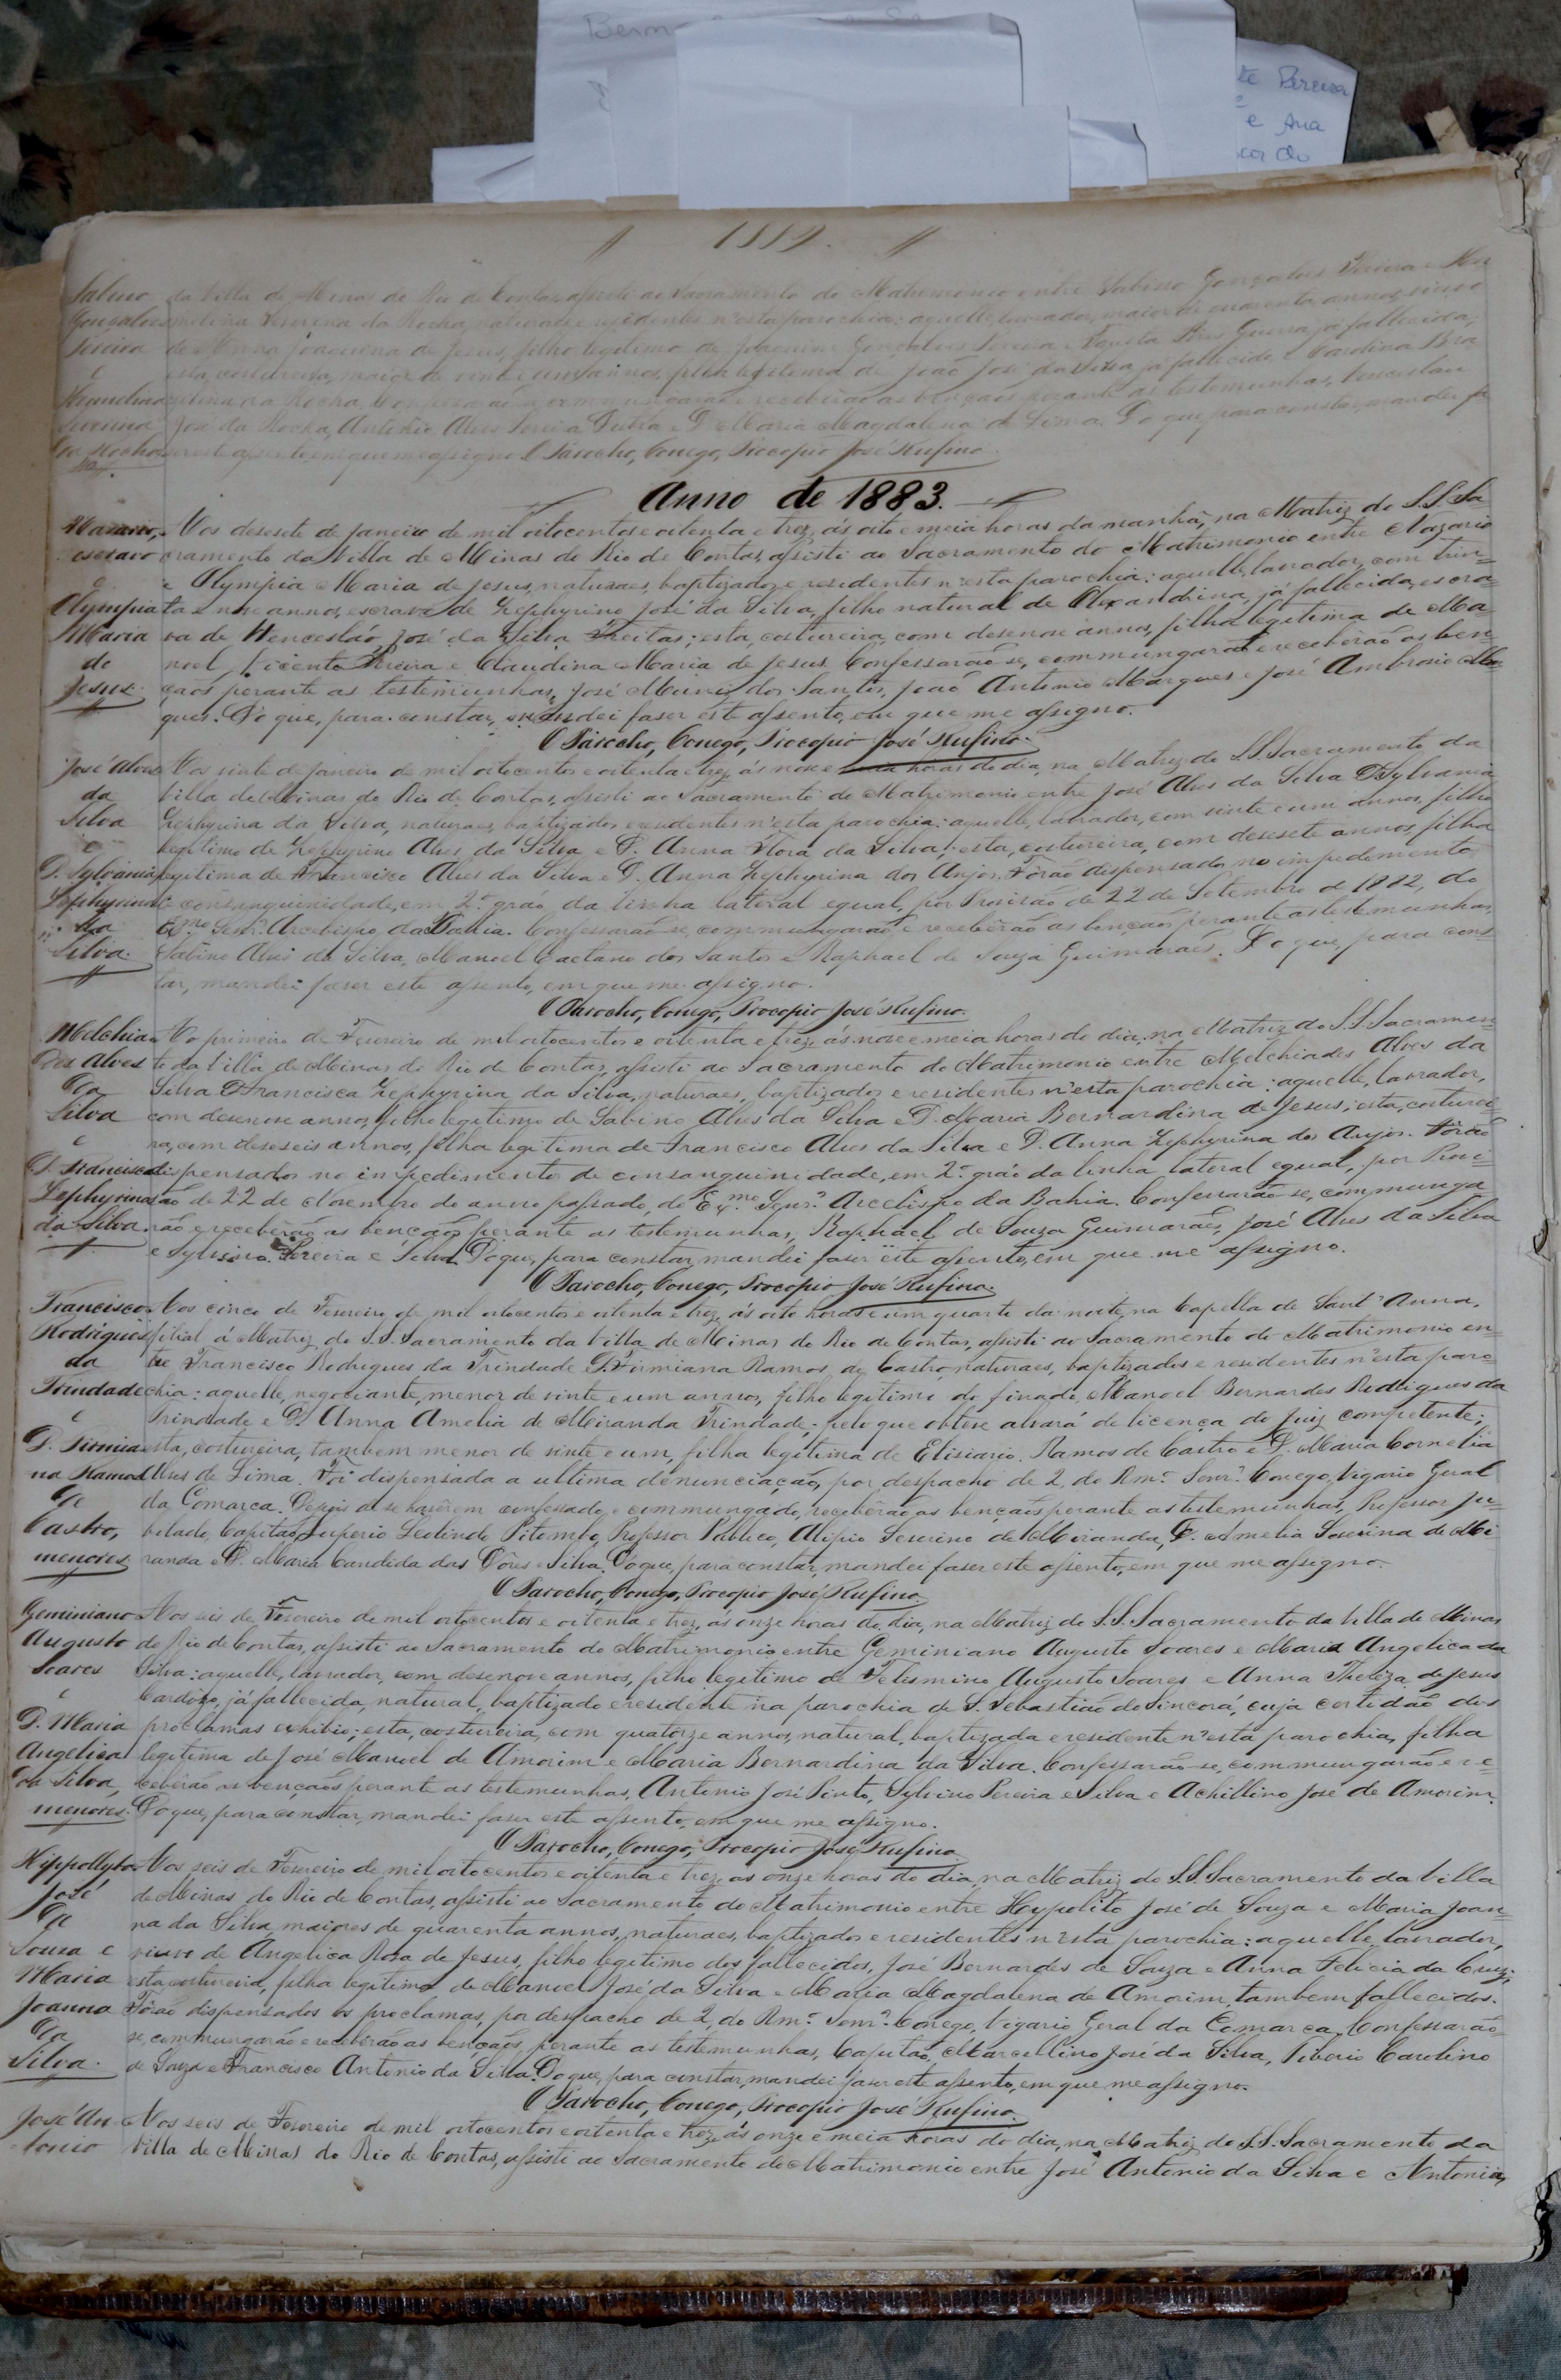 Berm
te Pereira
e Ana
cor do
1882.
Sabino da Villa de Minas do Rio de Contas, assisti ao Sacramento do Matrimonio entre Sabino Gonçalves Pereira e
Gonçalves Severina da Rocha, naturaes e residentes n'esta parochia: aquelle, lavrador, maior de quarenta annos, viuvo
Pereira de Anna Joaquina de Jesus, filho legitimo de Joaquim Gonçalves Pereira e Pires Guerra, já fallecida;
e esta, costureira, maior de vinte e um annos, filha legitima de João José da Silva, já fallecido, e Bra
da Rocha. as bençãos perante as testemunhas, Venceslau
José da Rocha, Antonio Alves Pereira Dutra e D. Maria Magdalena de Lima. Do que, para constar, mandei fa
da Rocha ser este assento, em que me assigno. O Parocho, Conego, Procopio José Rufino.
Anno de 1883.
Nazario, Aos desesete de Janeiro de mil oitocentos e oitenta e trez, ás oito e meia horas da manhã, na Matriz do S.S. Sa-
escravo cramento da Villa de Minas do Rio de Contas, assisti ao Sacramento do Matrimonio entre Nazario
e e Olympia Maria de Jesus, naturaes, baptizados e residentes n'esta parochia: aquelle, lavrador, com trin-
Olympia ta e nove annos, escravo de Zephyrino José da Silva, filho natural de Alexandrina, já fallecida, escra-
Maria va de Wenceslão José da Silva Freitas; esta, costureira, com desenove annos, filha legitima de Ma-
de noel Vicente Pereira e Claudina Maria de Jesus. Confessarão-se, commungarão e receberão as ben-
Jesus. çãos perante as testemunhas, José Muniz dos Santos, João Antonio Marques e José Ambrosio Mar-
ques. Do que, para constar, mandei faser este assento, em que me assigno.
O Parocho, Conego, Procopio José Rufino.
José Alves Aos vinte de Janeiro de mil oitocentos e oitenta e trez, ás nove e meia horas do dia, na Matriz do S.S. Sacramento da
da Villa de Minas do Rio de Contas, assisti ao Sacramento do Matrimonio entre José Alves da Silva e D. Sylvania
Silva Zephyrina da Silva, naturaes, baptizados e residentes n'esta parochia: aquelle, lavrador, com vinte e um annos, filho
e legitimo de Zephyrino Alves da Silva e D. Anna Flora da Silva; esta, costureira, com desesete annos, filha
D. Sylvania legitima de Francisco Alves da Silva e D. Anna Zephyrina dos Anjos. Forão dispensados no impedimento
Zephyrina de consanguinidade, em 2º gráo da linha lateral egual, por Provisão de 22 de Setembro de 1882, do
da Exmo. Senr. Arcebispo da Bahia. Confessarão-se, commungarão e receberão as bençãos perante as testemunhas,
Silva. Sabino Alves da Silva, Manoel Caetano dos Santos e Raphael de Souza Guimarães. Do que, para cons-
tar, mandei faser este assento, em que me assigno.
O Parocho, Conego, Procopio José Rufino.
Melchia- Ao primeiro de Fevereiro de mil oitocentos e oitenta e trez, ás nove e meia horas do dia, na Matriz do S.S. Sacramen-
des Alves to da Villa de Minas do Rio de Contas, assisti ao Sacramento do Matrimonio entre Melchiades Alves da
da Silva e D. Francisca Zephyrina da Silva, naturaes, baptizados e residentes n'esta parochia: aquelle, lavrador,
Silva com desenove annos, filho legitimo de Sabino Alves da Silva e D. Maria Bernardina de Jesus; esta, costurei-
e ra, com deseseis annos, filha legitima de Francisco Alves da Silva e D. Anna Zephyrina dos Anjos. Forão
D. Francisca dispensados no impedimento de consanguinidade, em 2º gráo da linha lateral egual, por Provi-
Zephyrina são de 22 de Novembro do anno passado, do Exmo. Senr. Arcebispo da Bahia. Confessarão-se, communga
da Silva. rão e receberão as bençãos perante as testemunhas, Raphael de Souza Guimarães, José Alves da Silva
e Sylvino Pereira e Silva. Do que, para constar, mandei faser este assento, em que me assigno.
O Parocho, Conego, Procopio José Rufino.
Francisco Aos cinco de Fevereiro de mil oitocentos e oitenta e trez, ás oito horas e um quarto da noite, na Capella de Sant'Anna,
Rodrigues filial á Matriz do S.S. Sacramento da Villa de Minas do Rio de Contas, assisti ao Sacramento do Matrimonio en-
da tre Francisco Rodrigues da Trindade e D. Firmiana Ramos de Castro, naturaes, baptizados e residentes n'esta paro-
Trindade chia: aquelle, negociante, menor de vinte e um annos, filho legitimo do finado Manoel Bernardes Rodrigues da
e Trindade e D. Anna Amelia de Miranda Trindade, pelo que obteve alvará de licença do Juiz competente;
D. Firmia- esta, costureira, tambem menor de vinte e um, filha legitima de Elisiario Ramos de Castro e D. Maria Cornelia
na Ramos Alves de Lima. Foi dispensada a ultima denunciação, por despacho de 2, do Rmo. Senr. Conego, Vigario Geral
de da Comarca. Depois de se haverem confessado e commungado, receberão as bençãos perante as testemunhas, Professor Ju-
Castro, bilado, Capitão Luperio Leolindo Pitombo, Professor Publico, Alipio Severino de Miranda, D. Amelia Severina de Mi
menores. randa e D. Maria Candida das Dores e Silva. Do que, para constar, mandei faser este assento, em que me assigno.
O Parocho, Conego, Procopio José Rufino.
Geminiano Aos seis de Fevereiro de mil oitocentos e oitenta e trez, ás onze horas do dia, na Matriz do S.S. Sacramento da Villa de Minas
Augusto do Rio de Contas, assisti ao Sacramento do Matrimonio entre Geminiano Augusto Soares e Maria Angelica da
Soares Silva: aquelle, lavrador, com desenove annos, filho legitimo de Felismino Augusto Soares e Anna Thereza de Jesus
e Cardozo, já fallecida, natural, baptizado e residente na parochia de S. Sebastião do Sincorá, cuja certidão dos
D. Maria proclamas exhibio; esta, costureira, com quatorze annos, natural, baptizada e residente n'esta parochia, filha
Angelica legitima de José Manoel de Amorim e Maria Bernardina da Silva. Confessarão-se, commungarão e re-
da Silva, ceberão as bençãos perante as testemunhas, Antonio José Pinto, Sylvino Pereira e Silva e Achillino José de Amorim.
menores. Do que, para constar, mandei faser este assento, em que me assigno.
O Parocho, Conego, Procopio José Rufino.
Hippollyto Aos seis de Fevereiro de mil oitocentos e oitenta e trez, ás onze horas do dia, na Matriz do S.S. Sacramento da Villa
José de Minas do Rio de Contas, assisti ao Sacramento do Matrimonio entre Hypolito José de Souza e Maria Joan-
de na da Silva, maiores de quarenta annos, naturaes, baptizados e residentes n'esta parochia: aquelle, lavrador,
Sousa e viuvo de Angelica Rosa de Jesus, filho legitimo dos fallecidos, José Bernardes de Souza e Anna Felicia da Cruz;
Maria esta, costureira, filha legitima de Manoel José da Silva e Maria Magdalena de Amorim, tambem fallecidos.
Joanna Forão dispensados os proclamas, por despacho de 2, do Rmo. Senr. Conego, Vigario Geral da Comarca. Confessarão-
da se, commungarão e receberão as bençãos, perante as testemunhas, Capitão, Marcellino José da Silva, Tiberio Carolino
Silva. de Souza e Francisco Antonio da Silva. Do que, para constar, mandei faser este assento, em que me assigno.
O Parocho, Conego, Procopio José Rufino.
José An- Aos seis de Fevereiro de mil oitocentos e oitenta e trez, ás onze e meia horas do dia, na Matriz do S.S. Sacramento da
tonio Villa de Minas do Rio de Contas, assisti ao Sacramento do Matrimonio entre José Antonio da Silva e Antonia,